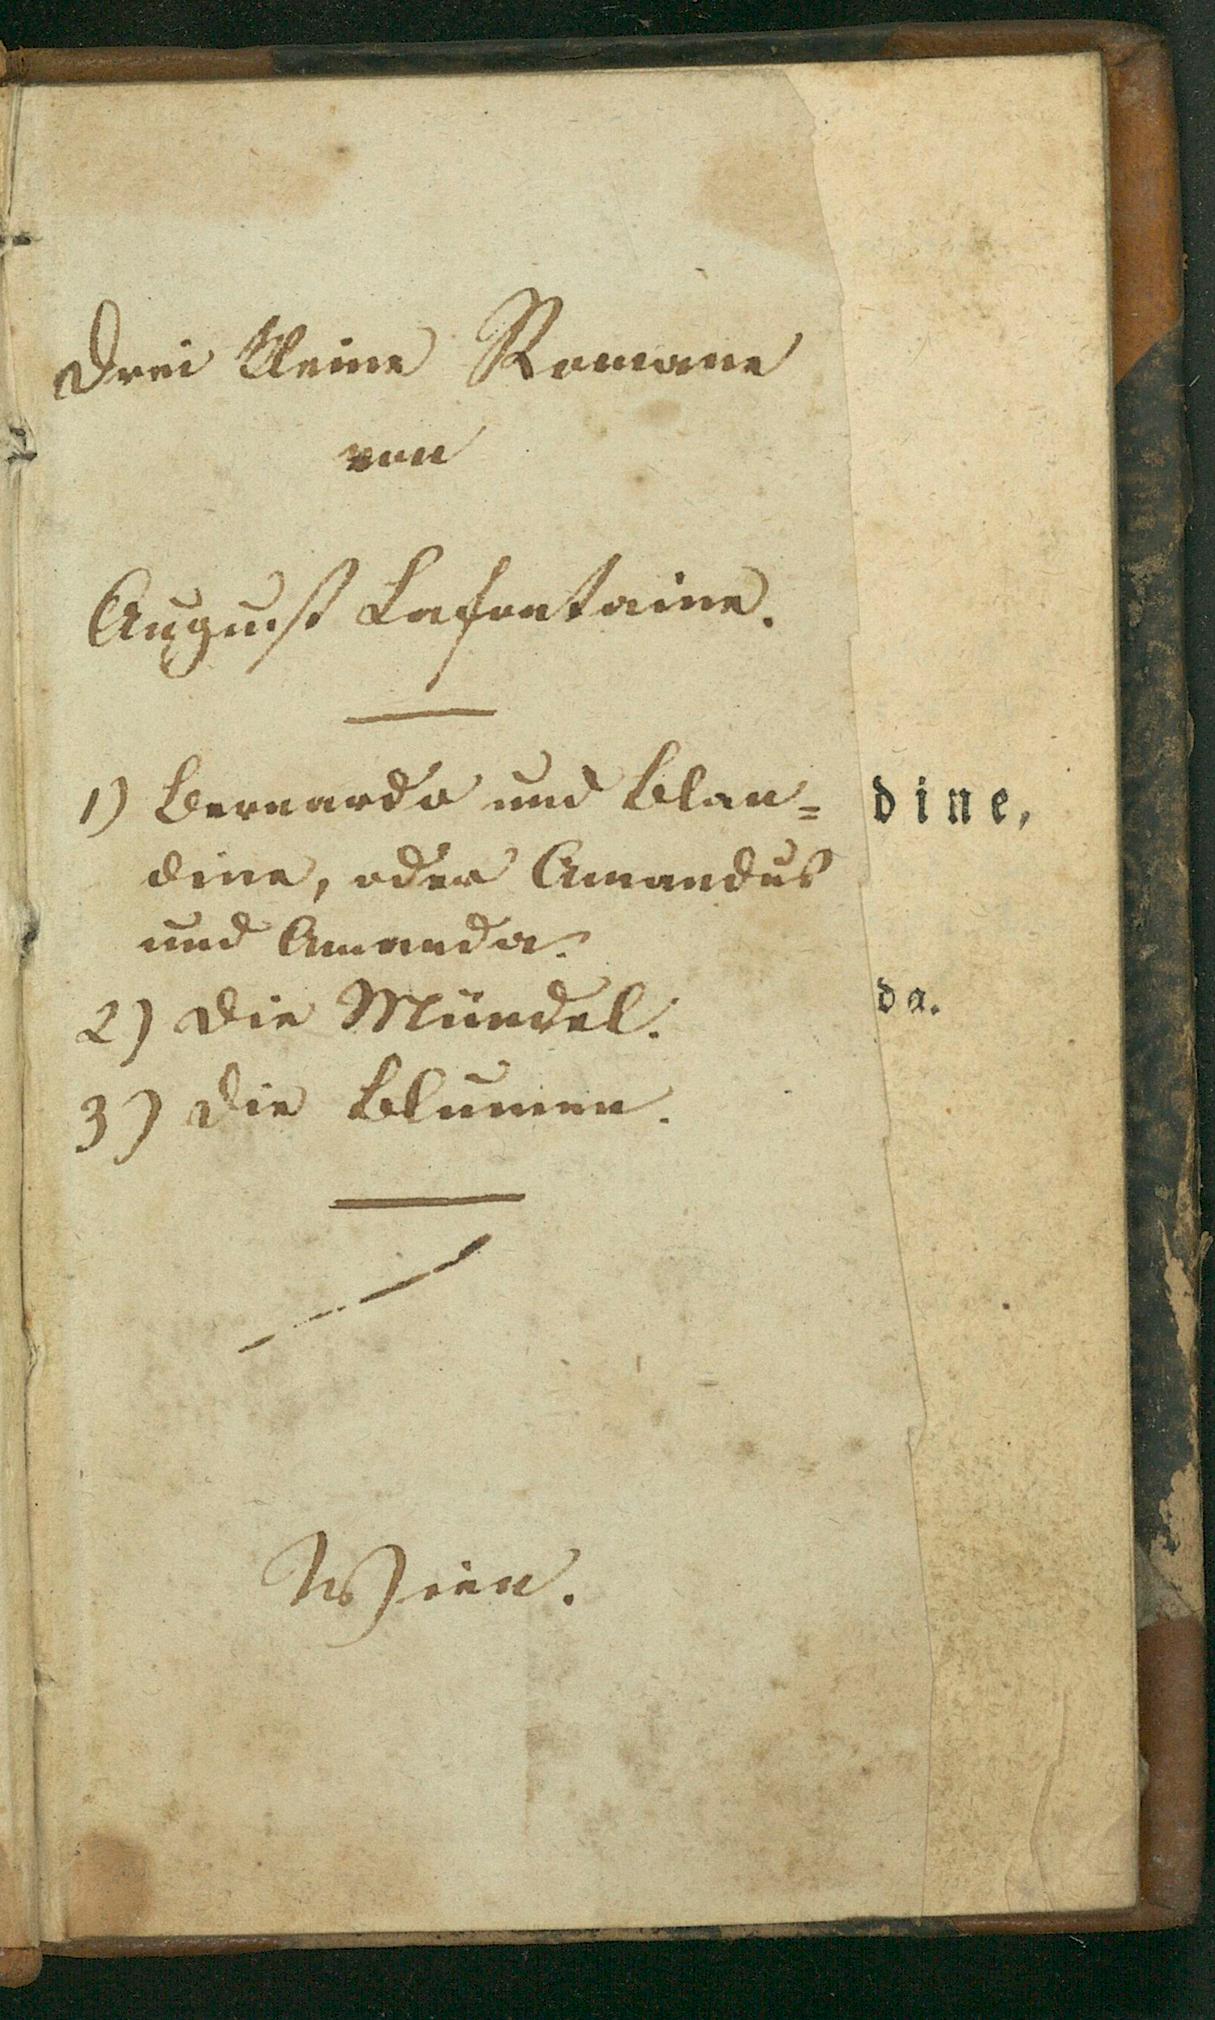 Drei kleine Romane
von
August Lafontaine.
1) Bernardo und Blan=
dine, oder Amandus
und Amanda.
2) Die Mündel.
3) Die Blumen.
Wien.
dine,
da.